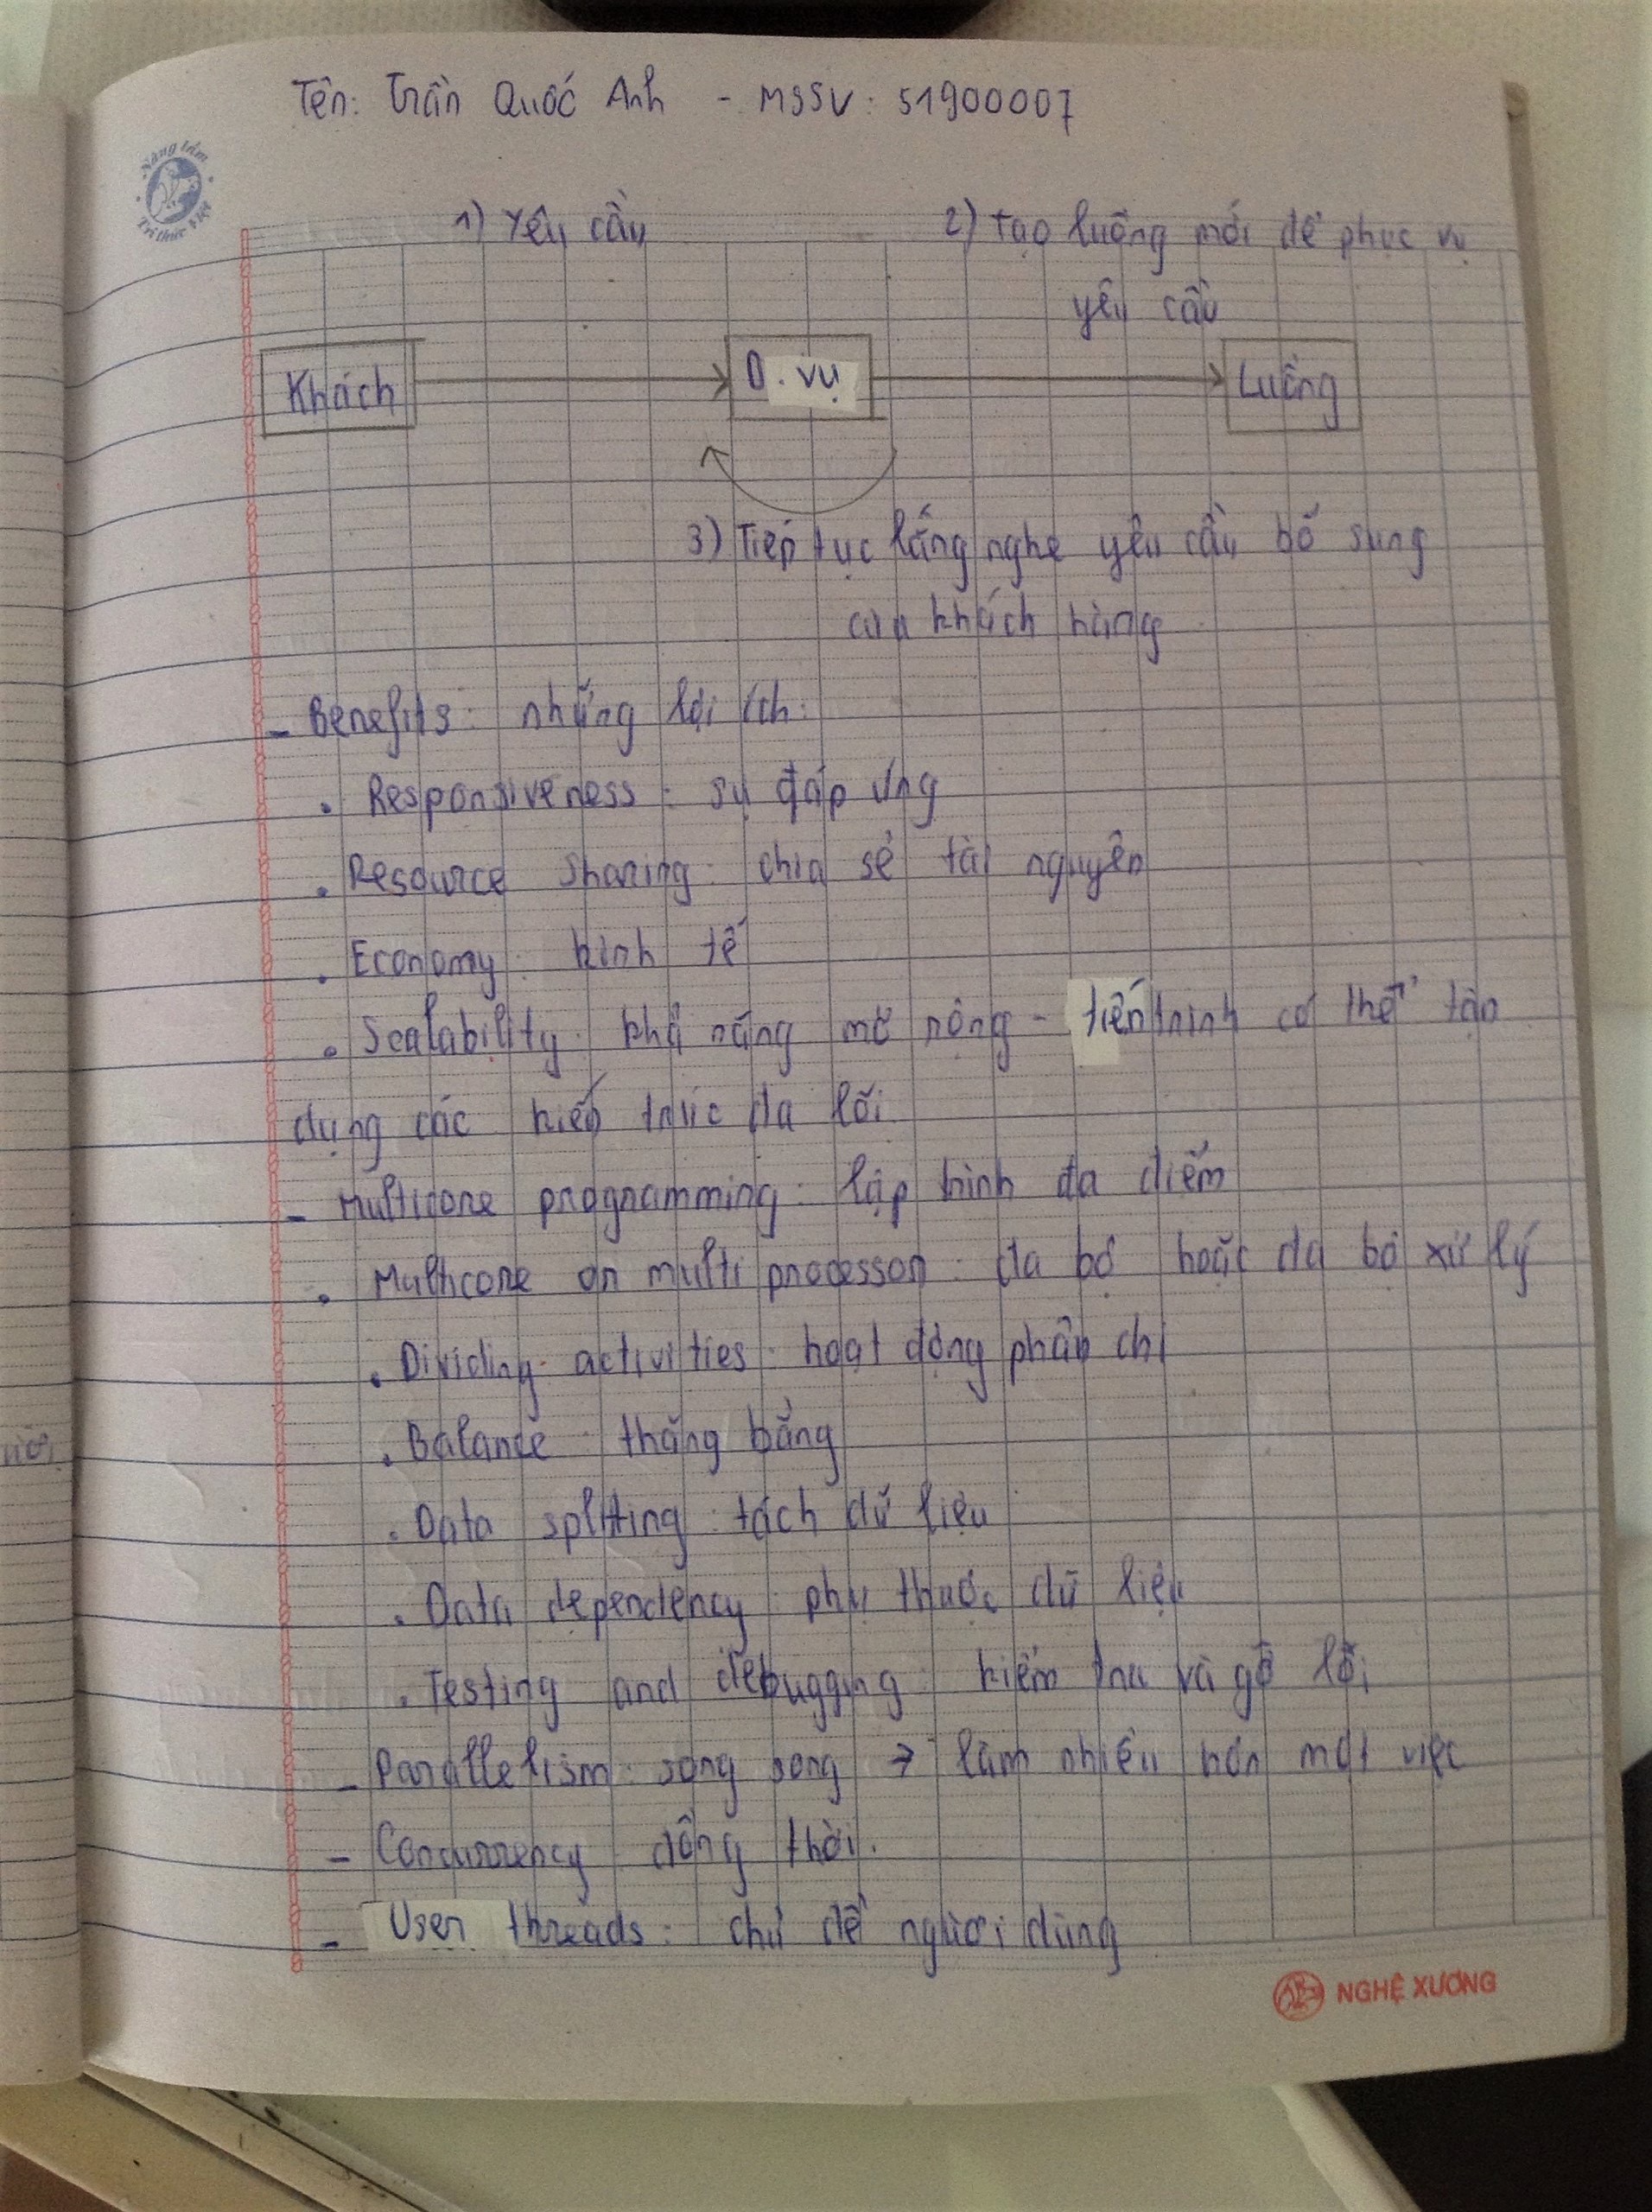 Tên: Trần Quốc Anh - MSSV: 51900007
Nâng tầm
Tri thức Việt
1) Yêu cầu
2) Tạo luồng mới để phục vụ
yêu cầu
Khách
D. vụ
Luồng
3) Tiếp tục lắng nghe yêu cầu bổ sung
của khách hàng
- Benefits: những lợi ích:
. Responsiveness: sự đáp ứng
. Resource sharing: chia sẻ tài nguyên
. Economy: kinh tế
. Scalability: khả năng mở rộng - tiến trình có thể tận
dụng các kiến trúc đa lõi
- Multicore programming: lập hình đa điểm
. Multicore or multi processor: đa bộ hoặc đa bộ xử lý
. Dividing activities: hoạt động phân chi
. Balance: thăng bằng
. Data splitting: tách dữ liệu
. Data dependency: phụ thuộc dữ liệu
. Testing and debugging: kiểm tra và gỡ lỗi
- Parallelism: song song → làm nhiều hơn một việc
- Concurrency: đồng thời.
- User threads: chủ đề người dùng
NGHỆ XƯƠNG